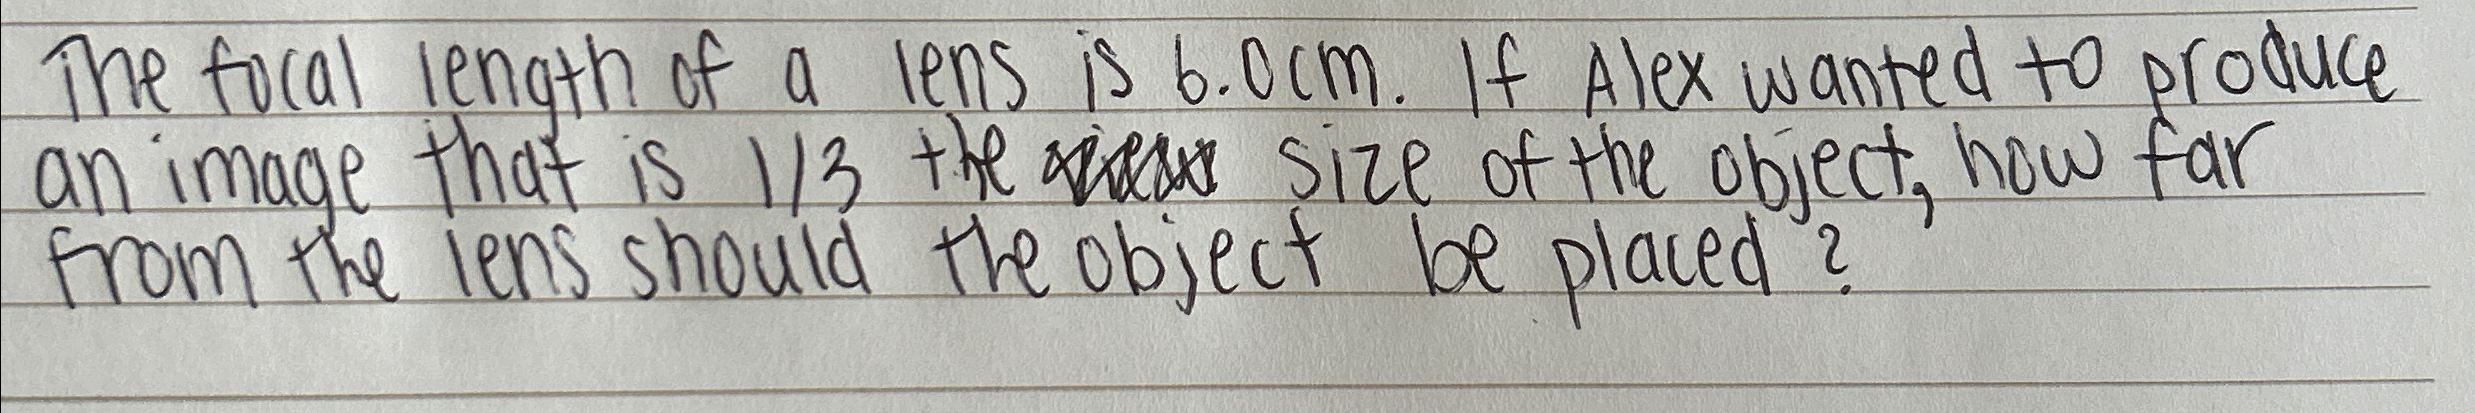 The focal length of a lens is 6.0cm. If Alex wanted to produce
an image that is 1/3 the size of the object, how far
from the lens should the object be placed?